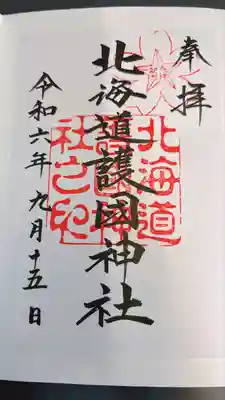 奉拝
北海道護國神社
北海道護國神社之印
令和六年九月十五日